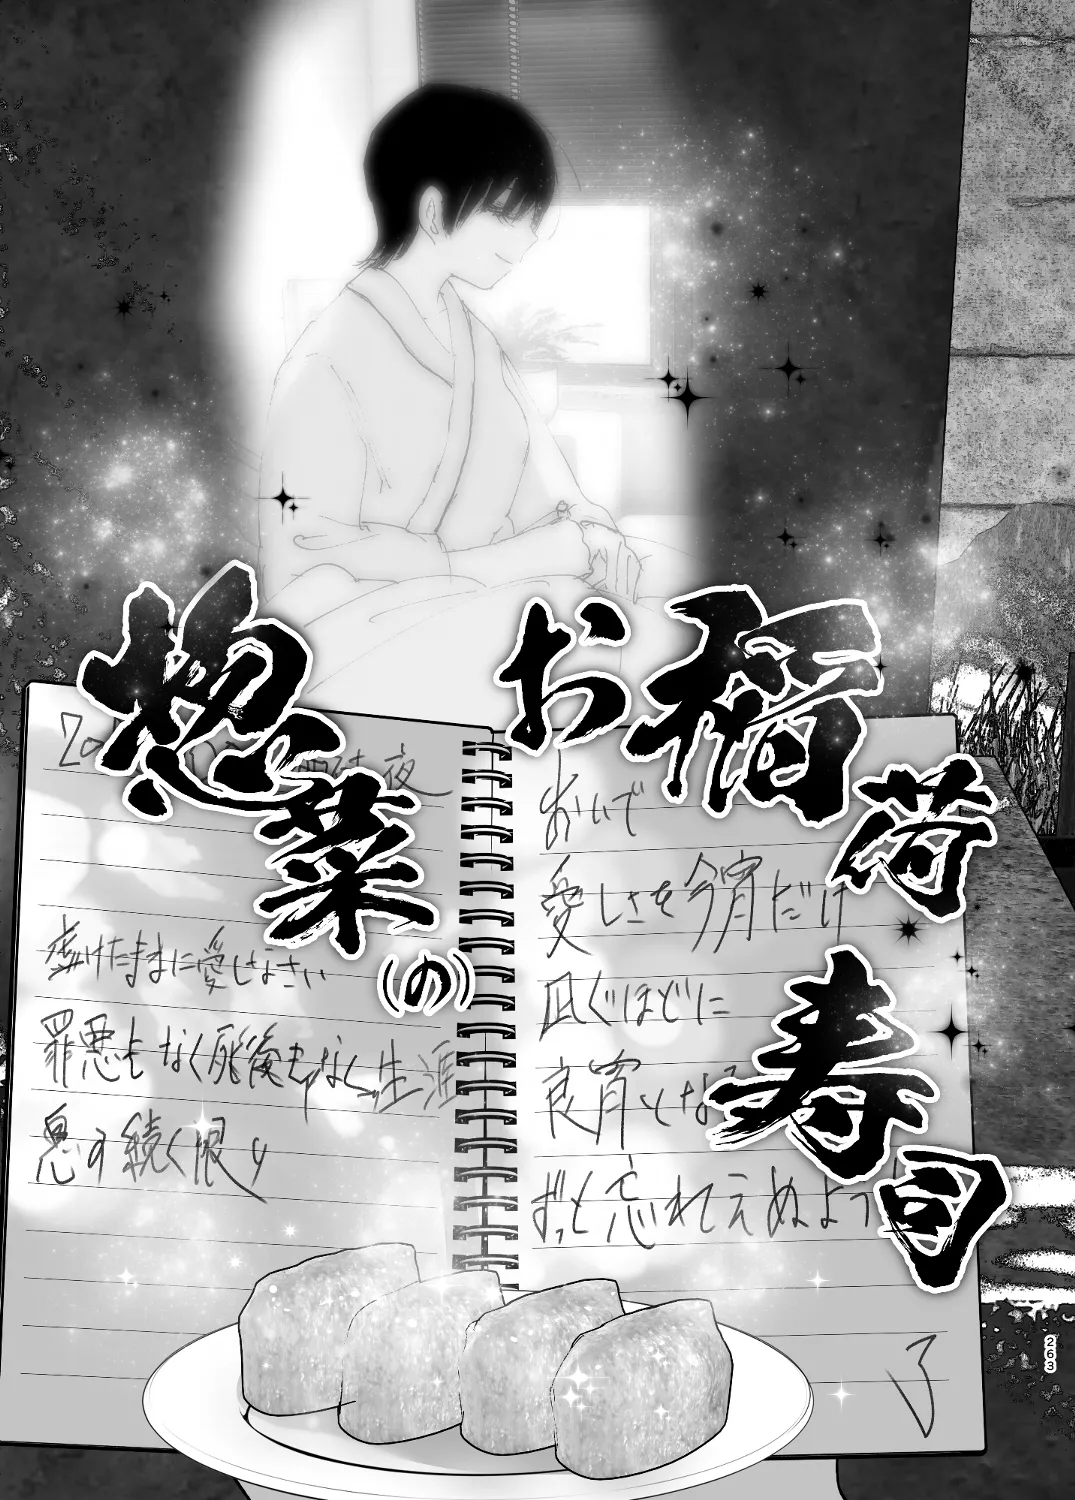 お稲荷寿司
惣菜(の)
おいで
愛しさを今宵だけ
凪ぐほどに
良宵となる
ずっと忘れてえぬよう
了
夜
虚けたままに愛しなさい
罪悪もなく死後もなく生涯
息の続く限り
263